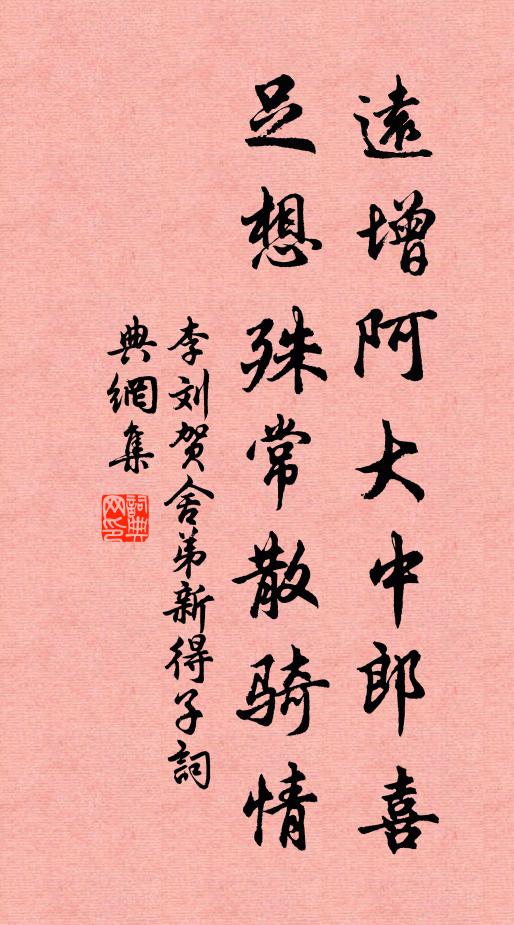 遠增阿大中郎喜
足想殊常散骑情
李刘贺舍弟新得子詞
典網集
詞典网印